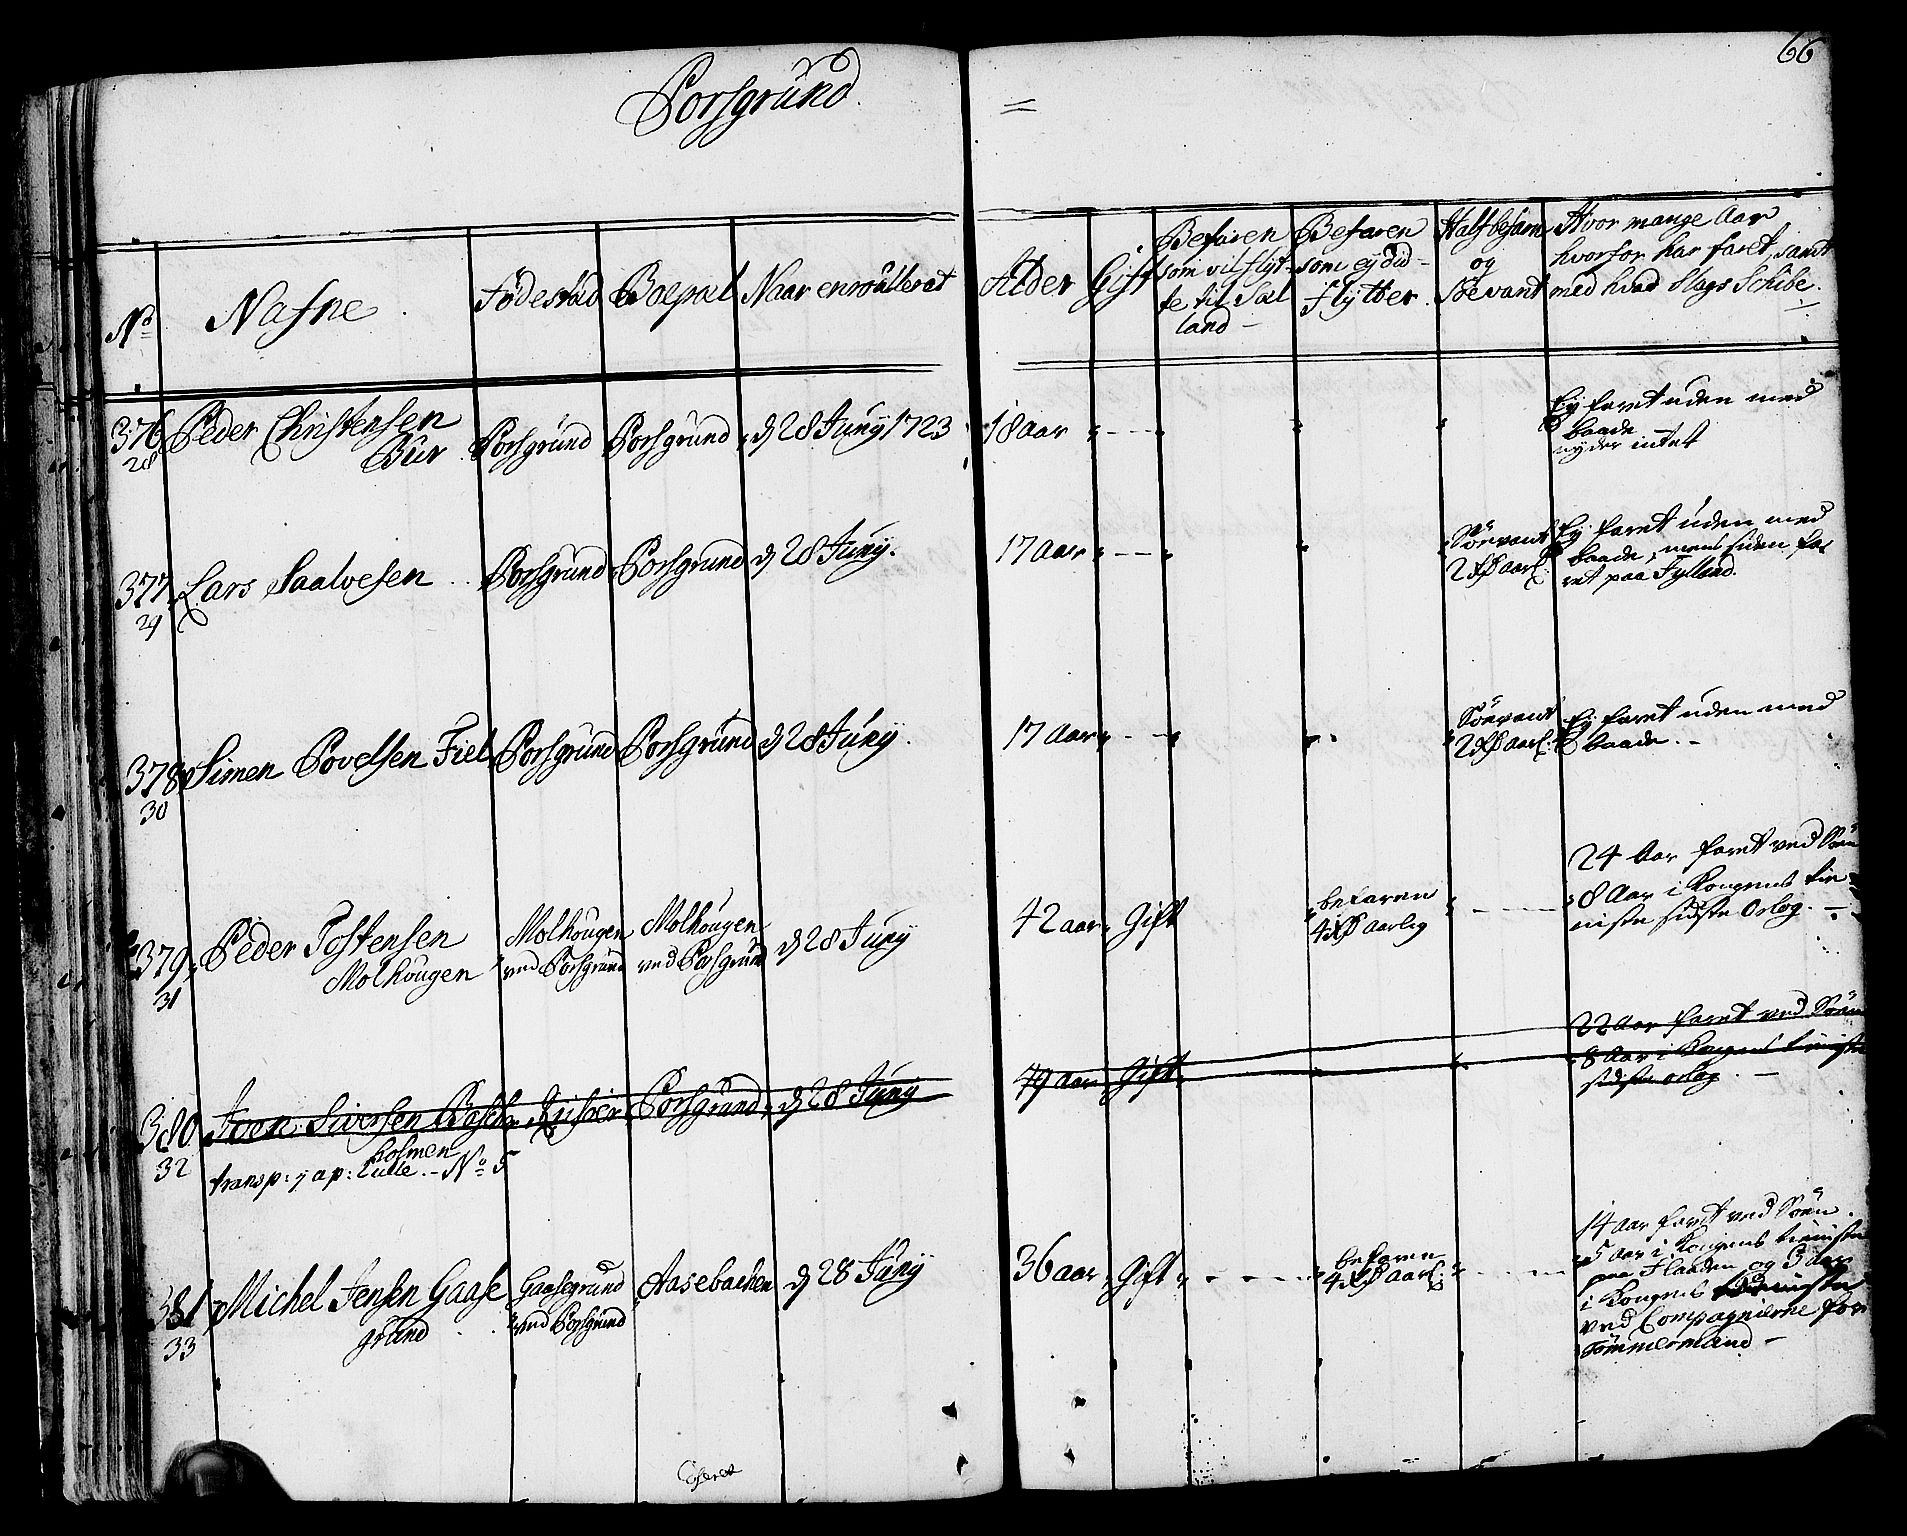 Porsgrund
=
66
No
Nafne
Fødestæd
Boepæl
Naar enroullerat
Alder
Gift
Befaren
som vil flyt-
te til Sæl
land -
Befaren
som ey vid-
Flytter
Halfbefarn
og
Søevant
Hvor mange Aar
hvorfor har faret, samt
med hvad Slags Schibe.
376
28
Peder Christensen
Bur
Porsgrund
Porsgrund
d 28 Juny 1723
18 aar
Ey faret uden med
baade
nyder intet
377
29
Lars Saalvesen
Porsgrund
Porsgrund
d 28 Juny.
17 Aar
Søevant
2 Aarl:
Ey faret uden med
baade, mens siden fa-
ret paa Jylland.
378
30
Simen Povelsen Fiel
Porsgrund
Porsgrund
d 28 Juny.
17 Aar
Søevant
2 Aarl:
Ey faret uden med
baade.-
379
31
Peder Tostensen
Molhougen
Molhougen
ved Porsgrund
Molhougen
ved Porsgrund
d 28 Juny
42 aar
Gift
befaren
4 Aarlig
24 Aar faret ved Søen
8 Aar i Kongens tie-
niste sidste Orlog. -
380
32
Iven Siversen Basche
holmen
transp: y ap: Lulle.- No 5
Riisøer
Porsgrund
d 28 Juny
49 Aar
Gift
22 Aar faret ved Søen
8 Aar i Kongens tieniste
sidste orlog. -
381
33
Michel Jensen Gaase
grund
Gaasegrund
ved Porsgrund
Aasebachen
d 28 Juny
36 aar
Gift
befaren
4 Aarl:
14 Aar faret ved Søen.
5 Aar i Kongens tieniste
paa Flaaden og 3 Aar
i Kongens tieniste
ved Compagnierne for
Tømmermand -